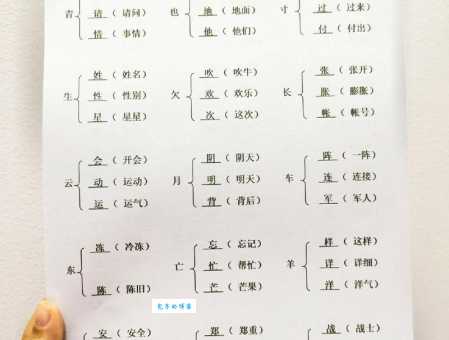 青 请（请问） 也 地（地面） 寸 过（过来）
情（事情） 他（他们） 付（付出）
姓（姓名） 吹（吹牛） 张（张开）
生 性（性别） 欠 欢（欢乐） 长 胀（膨胀）
星（星星） 次（这次） 帐（帐号）
会（开会） 阴（阴天） 阵（一阵）
云 动（运动） 月 明（明天） 车 连（连接）
运（运气） 背（背后） 军（军人）
冻（冷冻） 忘（忘记） 样（这样）
东 亡 忙（帮忙） 羊 详（详细）
陈（陈旧） 芒（芒果） 洋（洋气）
安（安全） 郑（郑重） 战（战士）